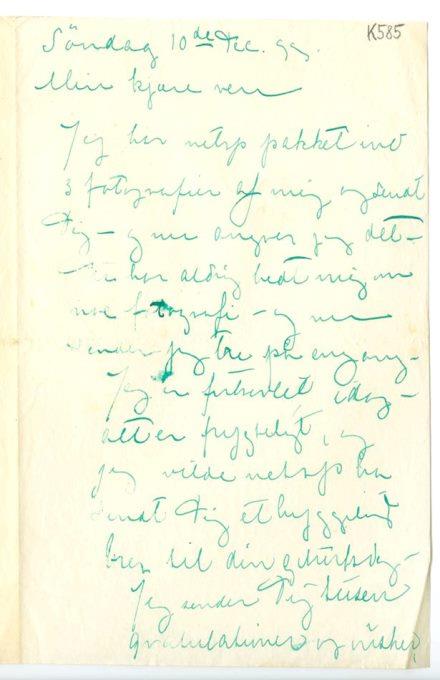 K585
Söndag 10de Dec. 99.
Min kjære ven
Jeg har netop pakket ind
3 fotografier af mig og sendt
Dig – og nu angrer jeg det –
Du har aldrig bedt mig om
noe fotografi – og nu
sender jeg tre på engang –
Jeg er fortvivlet idag –
alt er frygteligt, og
jeg vilde netop ha
sendt Dig et hyggeligt
brev til din geburtsdag –
Jeg sender Dig tusen
gratulationer og ønsker,